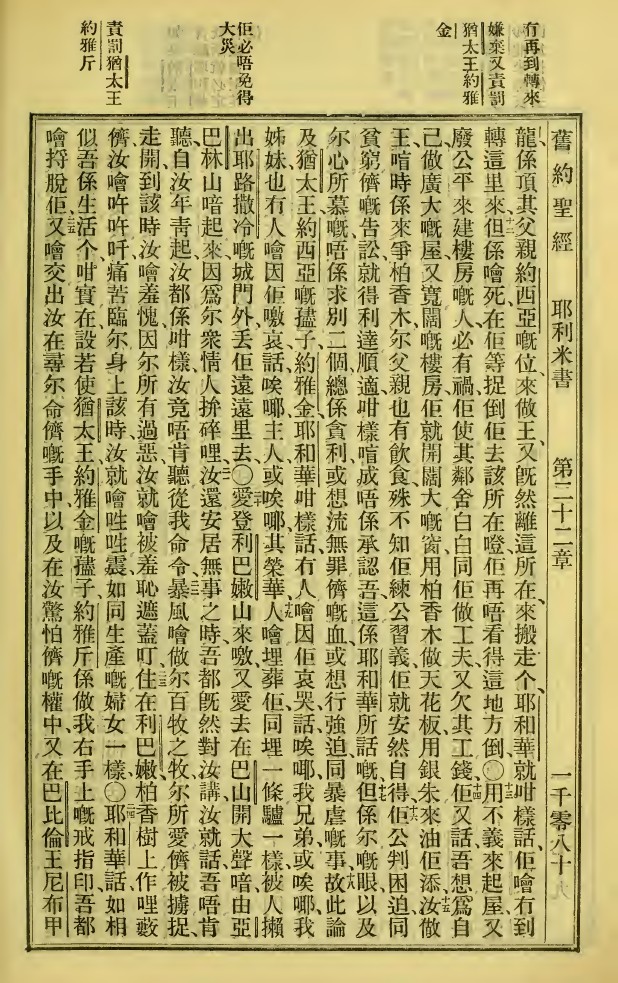 冇再到轉來
嫌棄又責罰
猶太王約雅
金
佢必唔免得
大災
責罰猶太王
約雅斤
舊約聖經 耶利米書 第二十二章 一千零八十
龍係頂其父親約西亞嘅位來做王又既然離這所在來搬走个耶和華就咁樣話佢噲冇到
轉這里來十二但係噲死在佢等捉倒佢去該所在嗱佢再唔看得這地方倒〇十三用不義來起屋又
廢公平來建樓房嘅人必有禍佢使其鄰舍白白同佢做工夫又欠其工錢十四佢又話吾想爲自
己做廣大嘅屋又寬闊嘅樓房佢就開闊大嘅窗用柏香木做天花板用銀朱來油佢十五添汝做
王喧時係來爭柏香木尔父親也有飲食殊不知佢練公習義佢就安然自得十六佢公判困迫同
貧窮儕嘅告訟就得利達順適咁樣喧成唔係承認吾這係耶和華所話嘅十七但係尔嘅眼以及
尔心所慕嘅唔係求別二個總係貪利或想流無罪儕嘅血或想行強迫同暴虐嘅事十八故此論
及猶太王約西亞嘅𤘅子約雅金耶和華咁樣話冇人噲因佢哀哭話唉哪我兄弟或唉哪我
姊妹也冇人噲因佢噭哀話唉哪主人或唉哪其榮華十九人噲埋葬佢同埋一條驢一樣被人擸
出耶路撒冷嘅城門外丟佢遠遠里去〇二十愛登利巴嫩山來噭又愛去在巴山開大聲喑由亞
巴林山喑起來因爲尔衆情人拚碎哩二一汝還安居無事之時吾都既然對汝講汝就話吾唔肯
聽自汝年靑起汝都係咁樣汝竟唔肯聽從我命令二二暴風噲做尔百牧之牧尔所愛儕被擄捉
走開到該時汝噲羞愧因尔所有過惡汝就噲被羞恥遮蓋叮二三住在利巴嫩柏香樹上作哩藪
儕汝噲吽吽吀痛苦臨尔身上該時汝就噲甡甡震如同生產嘅婦女一樣〇二四耶和華話如相
似吾係生活个咁實在設若使猶太王約雅金嘅𤘅子約雅斤係做我右手上嘅戒指印吾都
噲捋脫佢二五又噲交出汝在尋尔命儕嘅手中以及在汝驚怕儕嘅權中又在巴比倫王尼布甲